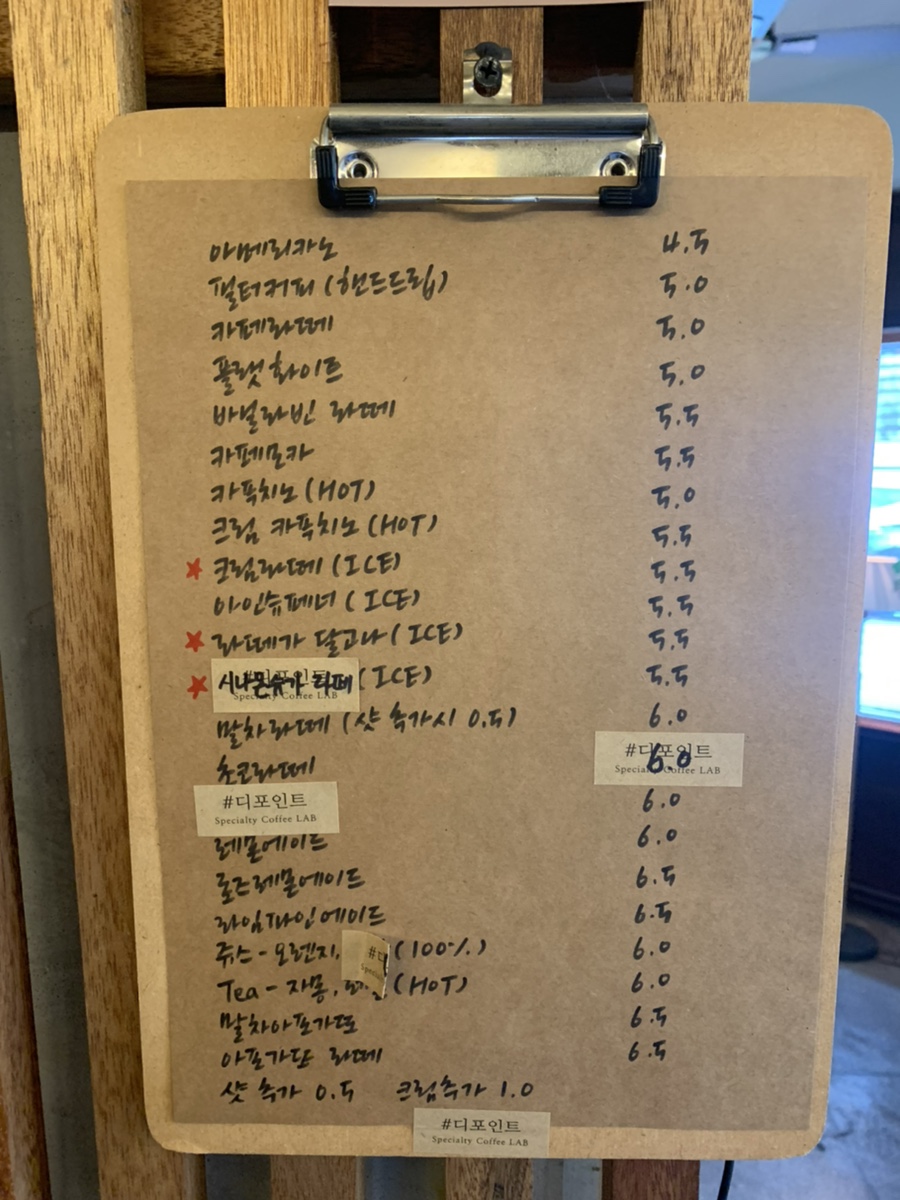 아메리카노 4.5
필터커피 (핸드드립) 5.0
카페라떼 5.0
플랫 화이트 5.0
바닐라빈 라떼 5.5
카페모카 5.5
카푹치노 (HOT) 5.0
크림 카푹치노 (HOT) 5.5
크림라떼 (ICE) 5.5
아인슈페너 (ICE) 5.5
라떼가 달고나 (ICE) 5.5
시나몬슈가 라떼 (ICE) 5.5
말차라떼 (샷 추가시 0.5) 6.0
초코라떼 6.0
#디포인트
Specialty Coffee LAB
6.0
레몬에이드 6.0
로즈레몬에이드 6.5
라임파인에이드 6.5
쥬스 - 오렌지, (100%) 6.0
Tea - 자몽, (HOT) 6.0
말차아포가또 6.5
아포가또 라떼 6.5
샷 추가 0.5 크림추가 1.0
#디포인트
Specialty Coffee LAB